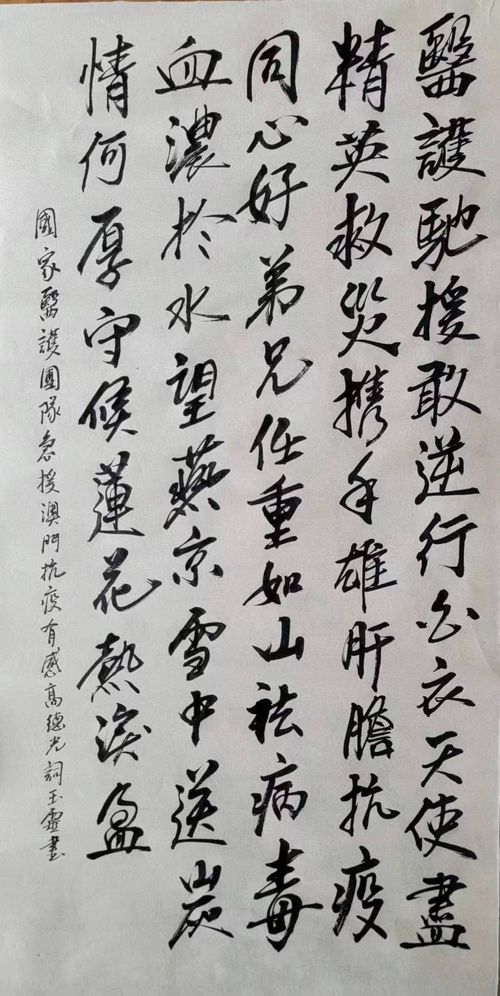 醫護馳援敢逆行白衣天使盡
精英救災携手雄肝膽抗疫
同心好弟兄任重如山祛病毒
血濃於水望燕京雪中送炭
情何厚守候蓮花熱淚盈
國家醫護團隊急援澳門抗疫有感高德光詞玉靈書